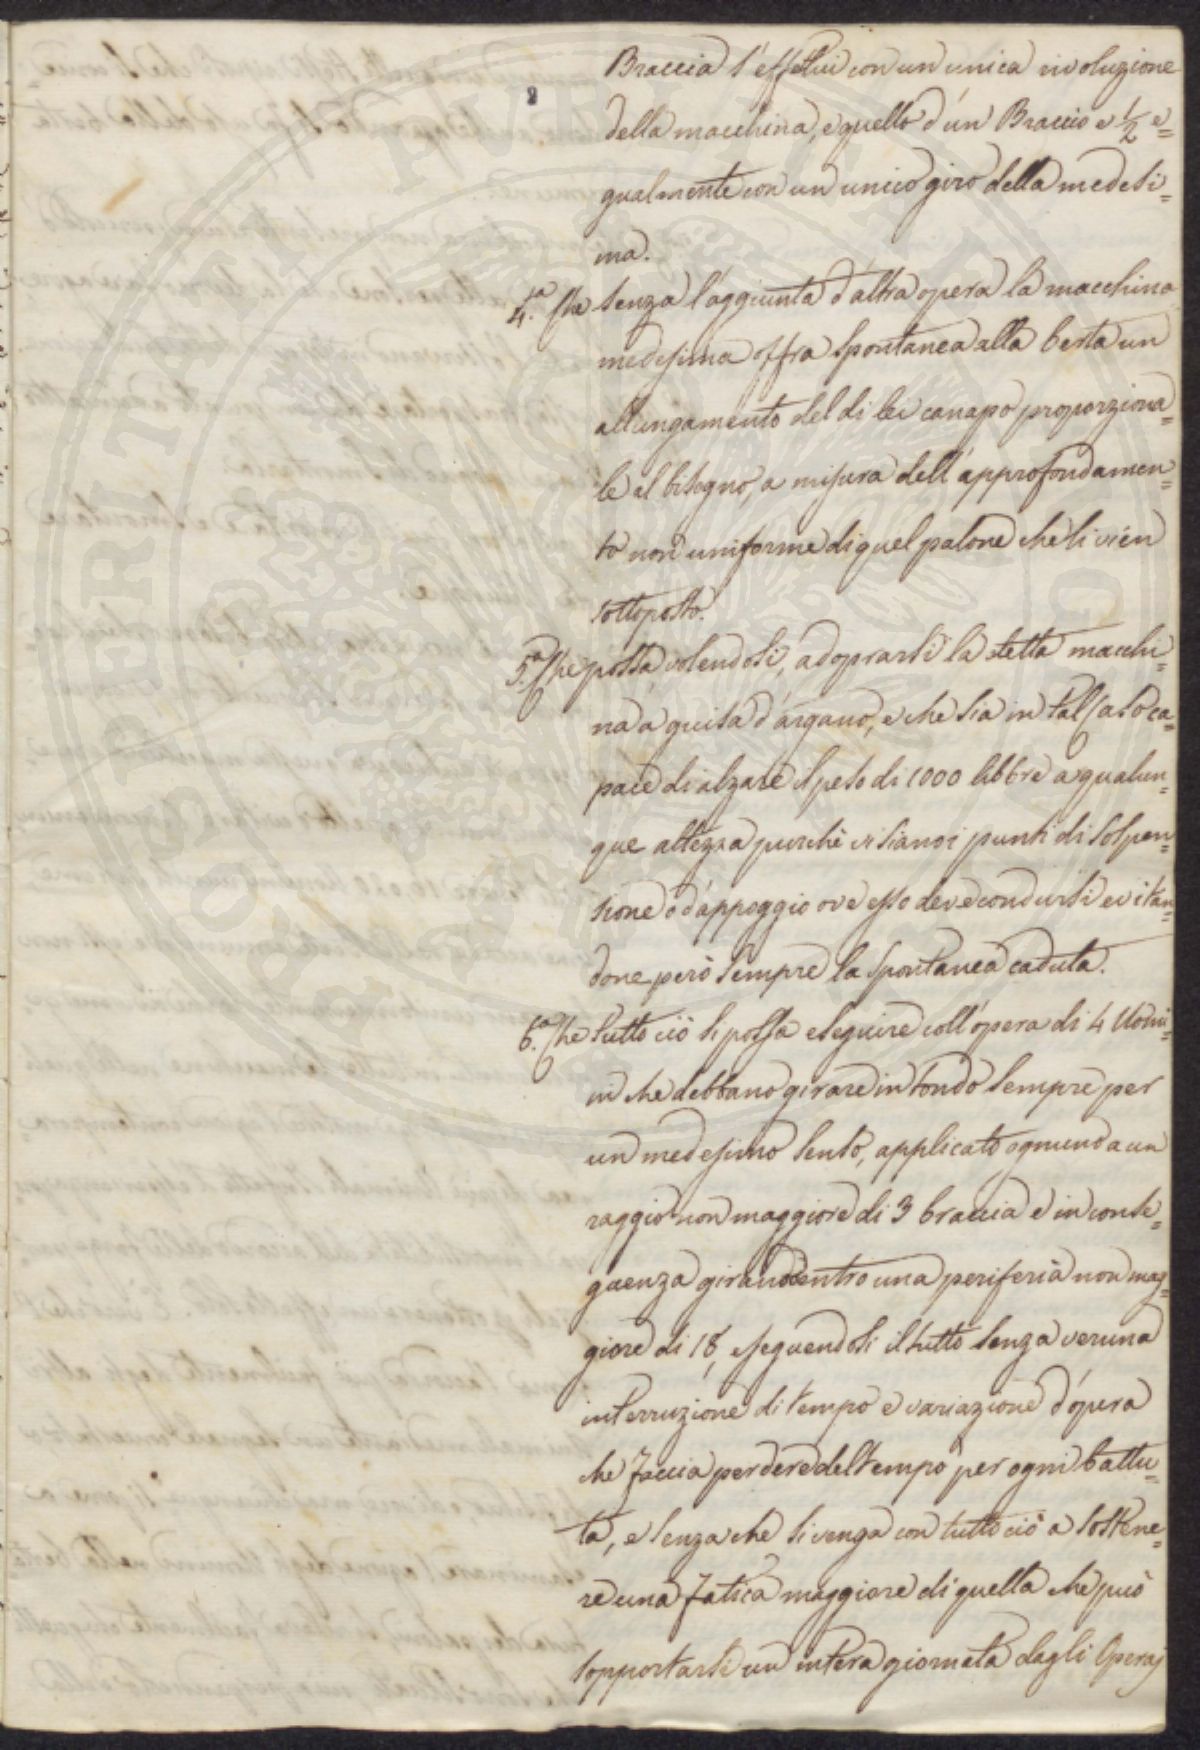 Braccia s'effettui con un unica rivoluzione
della macchina, e quello d'un Braccio e 1/2 e=
gualmente con un unico giro della medesi=
ma.
4.ª Che senza l'aggiunta d'altra opera la macchina
medesima offra spontanea alla berta un
allungamento del di lei canapo proporziona=
le al bisogno, a misura dell'approfondamen=
to non uniforme di quel palone che li vien
sottoposto.
5.ª Che possa volendosi, adoprarsi la stessa macchi=
na a guisa d'argano, e che sia in tal Caso ca=
pace di alzare il peso di 1000 libbre a qualun=
que altezza purchè vi siano i punti di sospen=
sione o d'appoggio ove esso deve condursi evitan=
done però sempre la spontanea caduta.
6.ª Che tutto ciò si possa eseguire coll'opera di 4 Uomi=
ni che debbano girare in tondo sempre per
un medesimo senso, applicato ognuno a un
raggio non maggiore di 3 braccia e in conse=
guenza girando entro una periferia non mag=
giore di 18, eseguendosi il tutto senza veruna
interruzione di tempo e variazione d'opera
che faccia perdere del tempo per ogni battu=
ta, e senza che si venga con tutto ciò a sostene=
re una fatica maggiore di quella che può
sopportarsi un intera giornata dagli Operaj